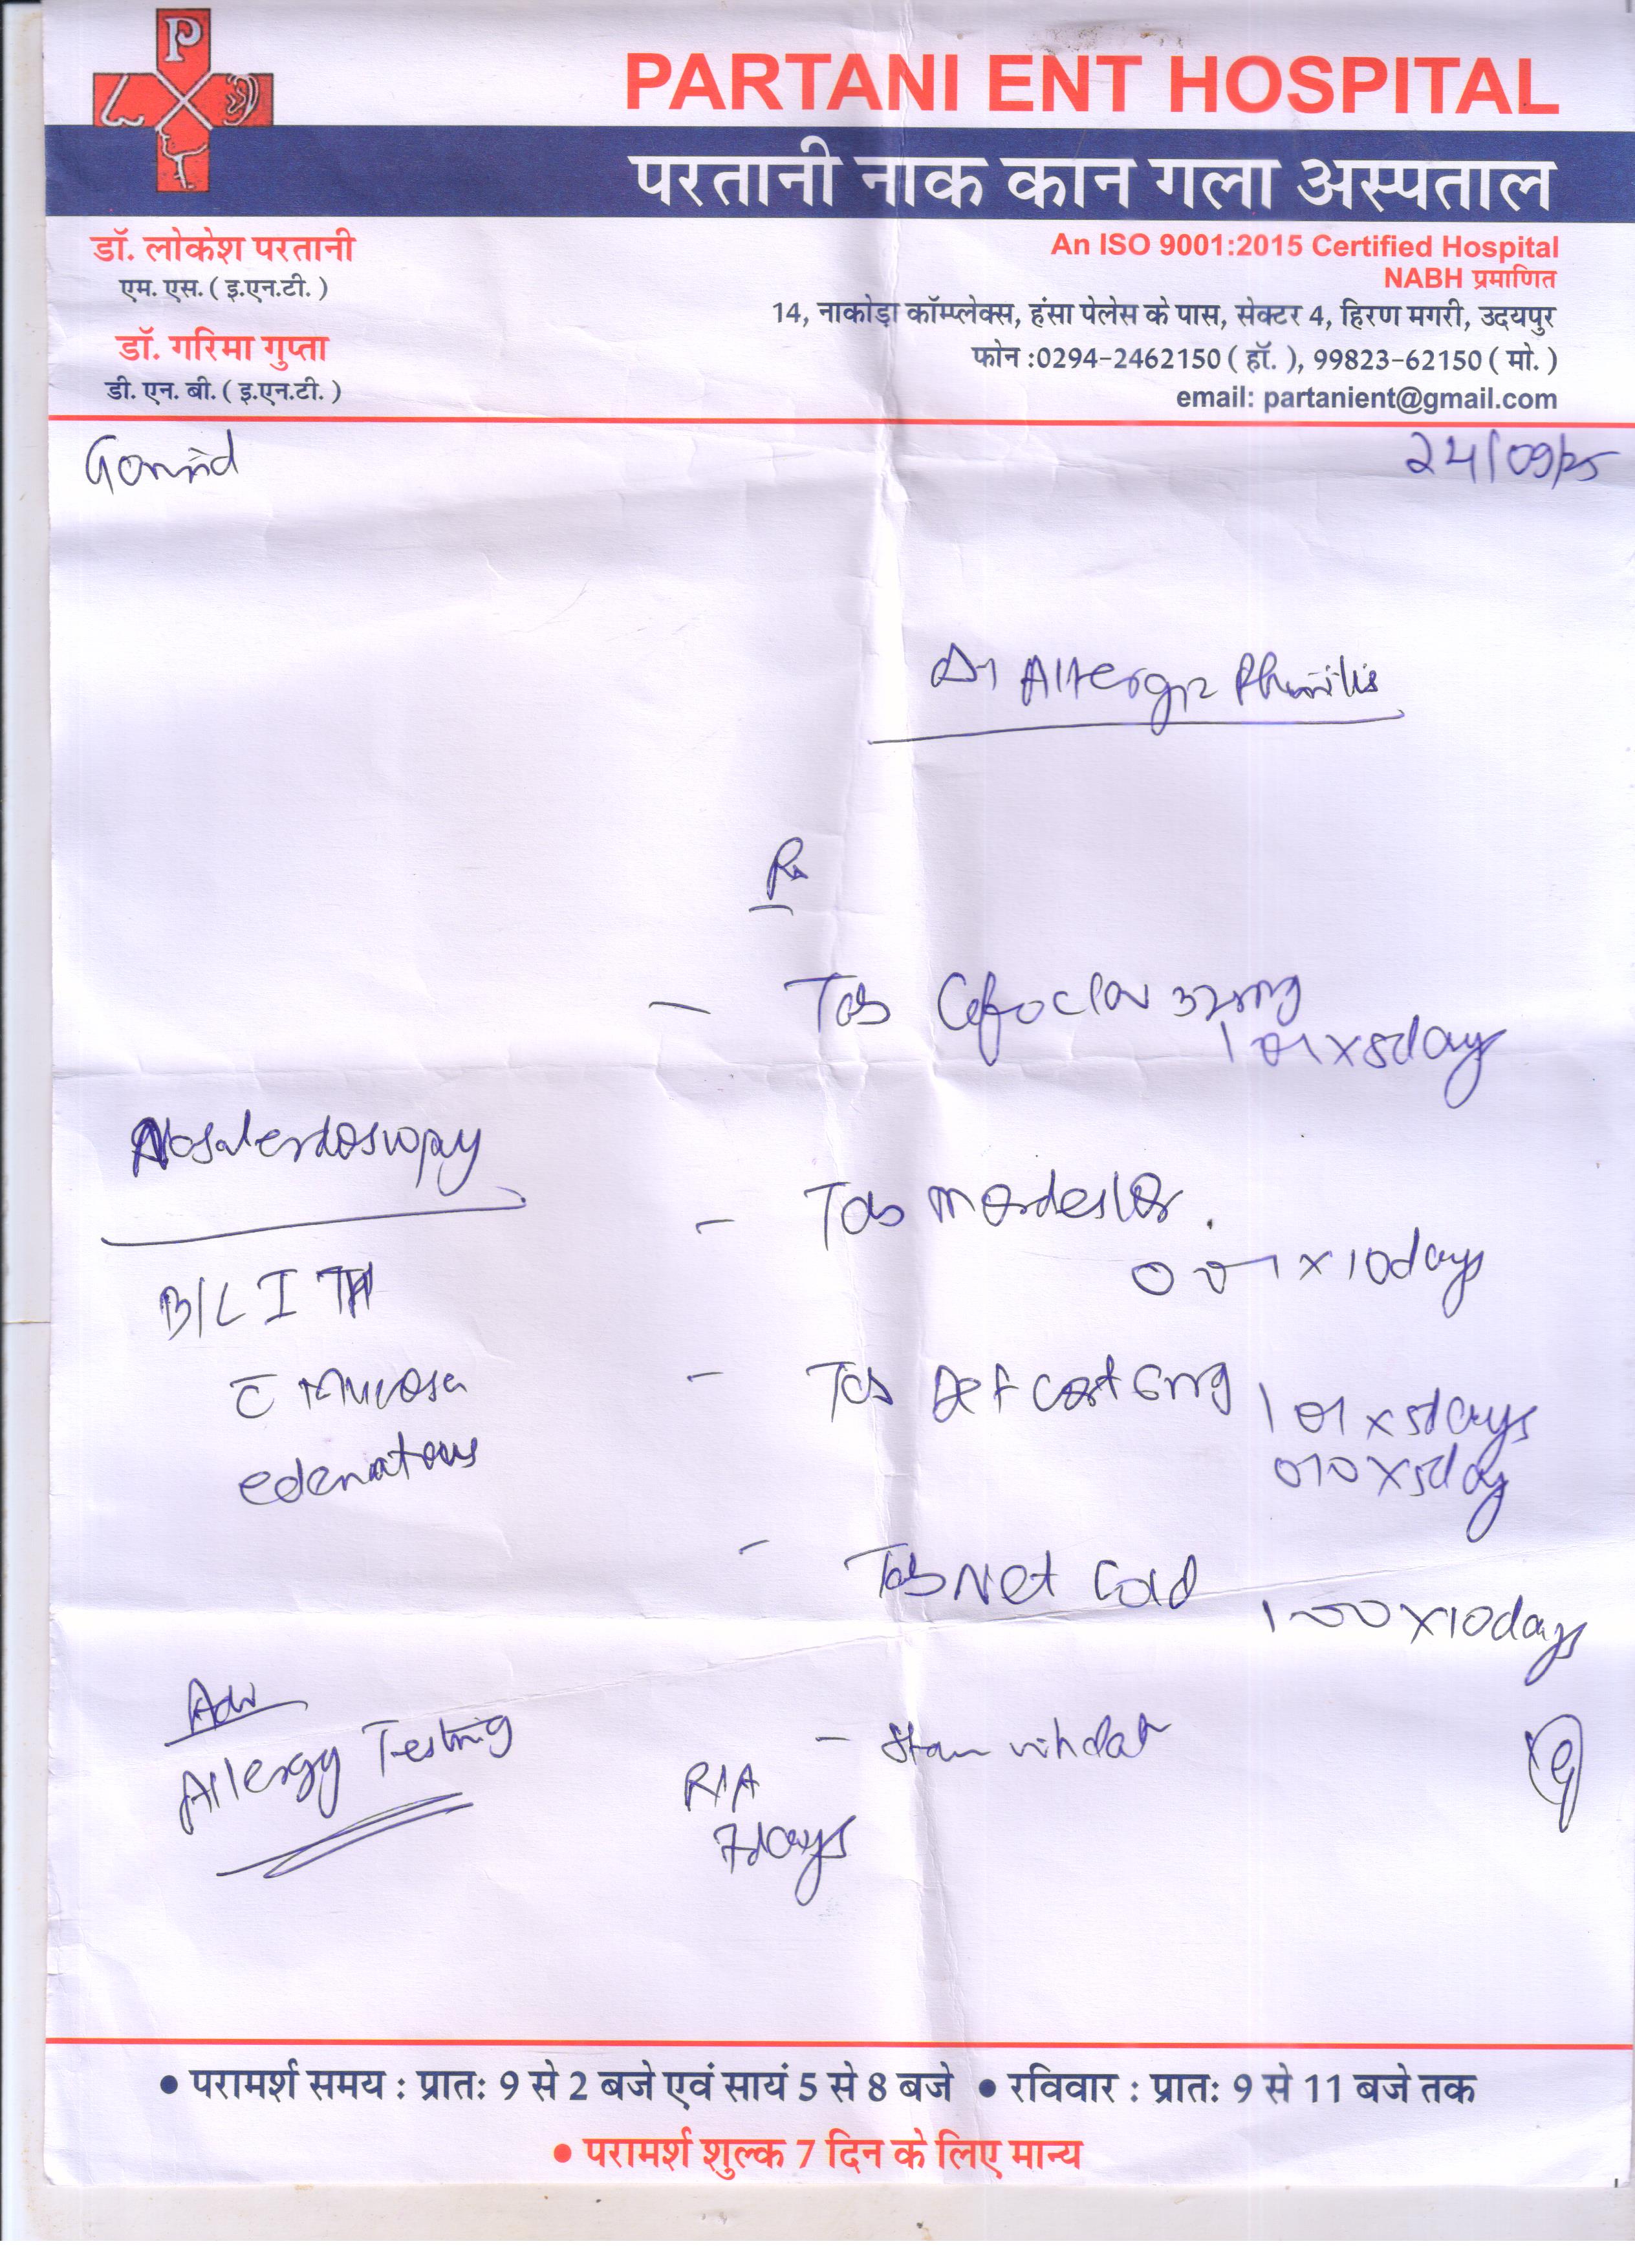 P
PARTANI ENT HOSPITAL
परतानी नाक कान गला अस्पताल
डॉ. लोकेश परतानी
एम. एस. ( इ.एन.टी. )
डॉ. गरिमा गुप्ता
डी. एन. बी. ( इ.एन.टी. )
An ISO 9001:2015 Certified Hospital
NABH प्रमाणित
14, नाकोड़ा कॉम्प्लेक्स, हंसा पेलेस के पास, सेक्टर 4, हिरण मगरी, उदयपुर
फोन :0294-2462150 ( हॉ. ), 99823-62150 ( मो. )
email: partanient@gmail.com
Govind
24/09/25
Allergic Rhinitis
Rx
- Tab
101 x 5days
Nasalendoscopy
B/L I T H
c̄ Mucosa
edematous
- Tab
001 x 10days
- Tab Defcort 6mg 101 x 5days
010 x 5day
- Tab Net Cold
100 x 10days
Adv
Allergy Testing
- Steam
R/A
7days
• परामर्श समय : प्रातः 9 से 2 बजे एवं सायं 5 से 8 बजे • रविवार : प्रातः 9 से 11 बजे तक
• परामर्श शुल्क 7 दिन के लिए मान्य